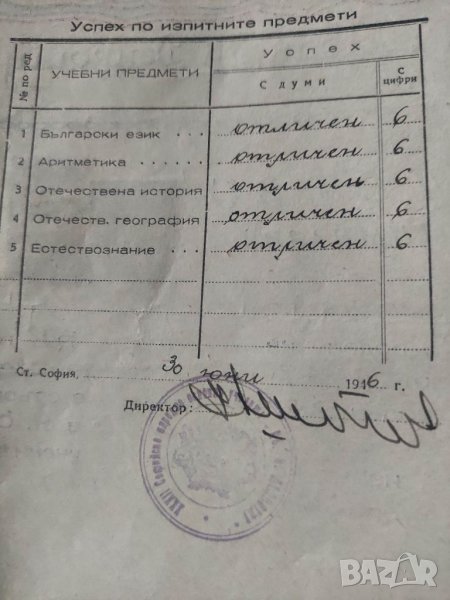 Успех по изпитните предмети
№ по ред
УЧЕБНИ ПРЕДМЕТИ
Успех
С думи
С цифри
1 Български език . . . отличен 6
2 Аритметика . . . . . . отличен 6
3 Отечествена история отличен 6
4 Отечеств. география отличен 6
5 Естествознание . . . отличен 6
Ст. София, 30 юни 1946 г.
Директор:
BAZAR